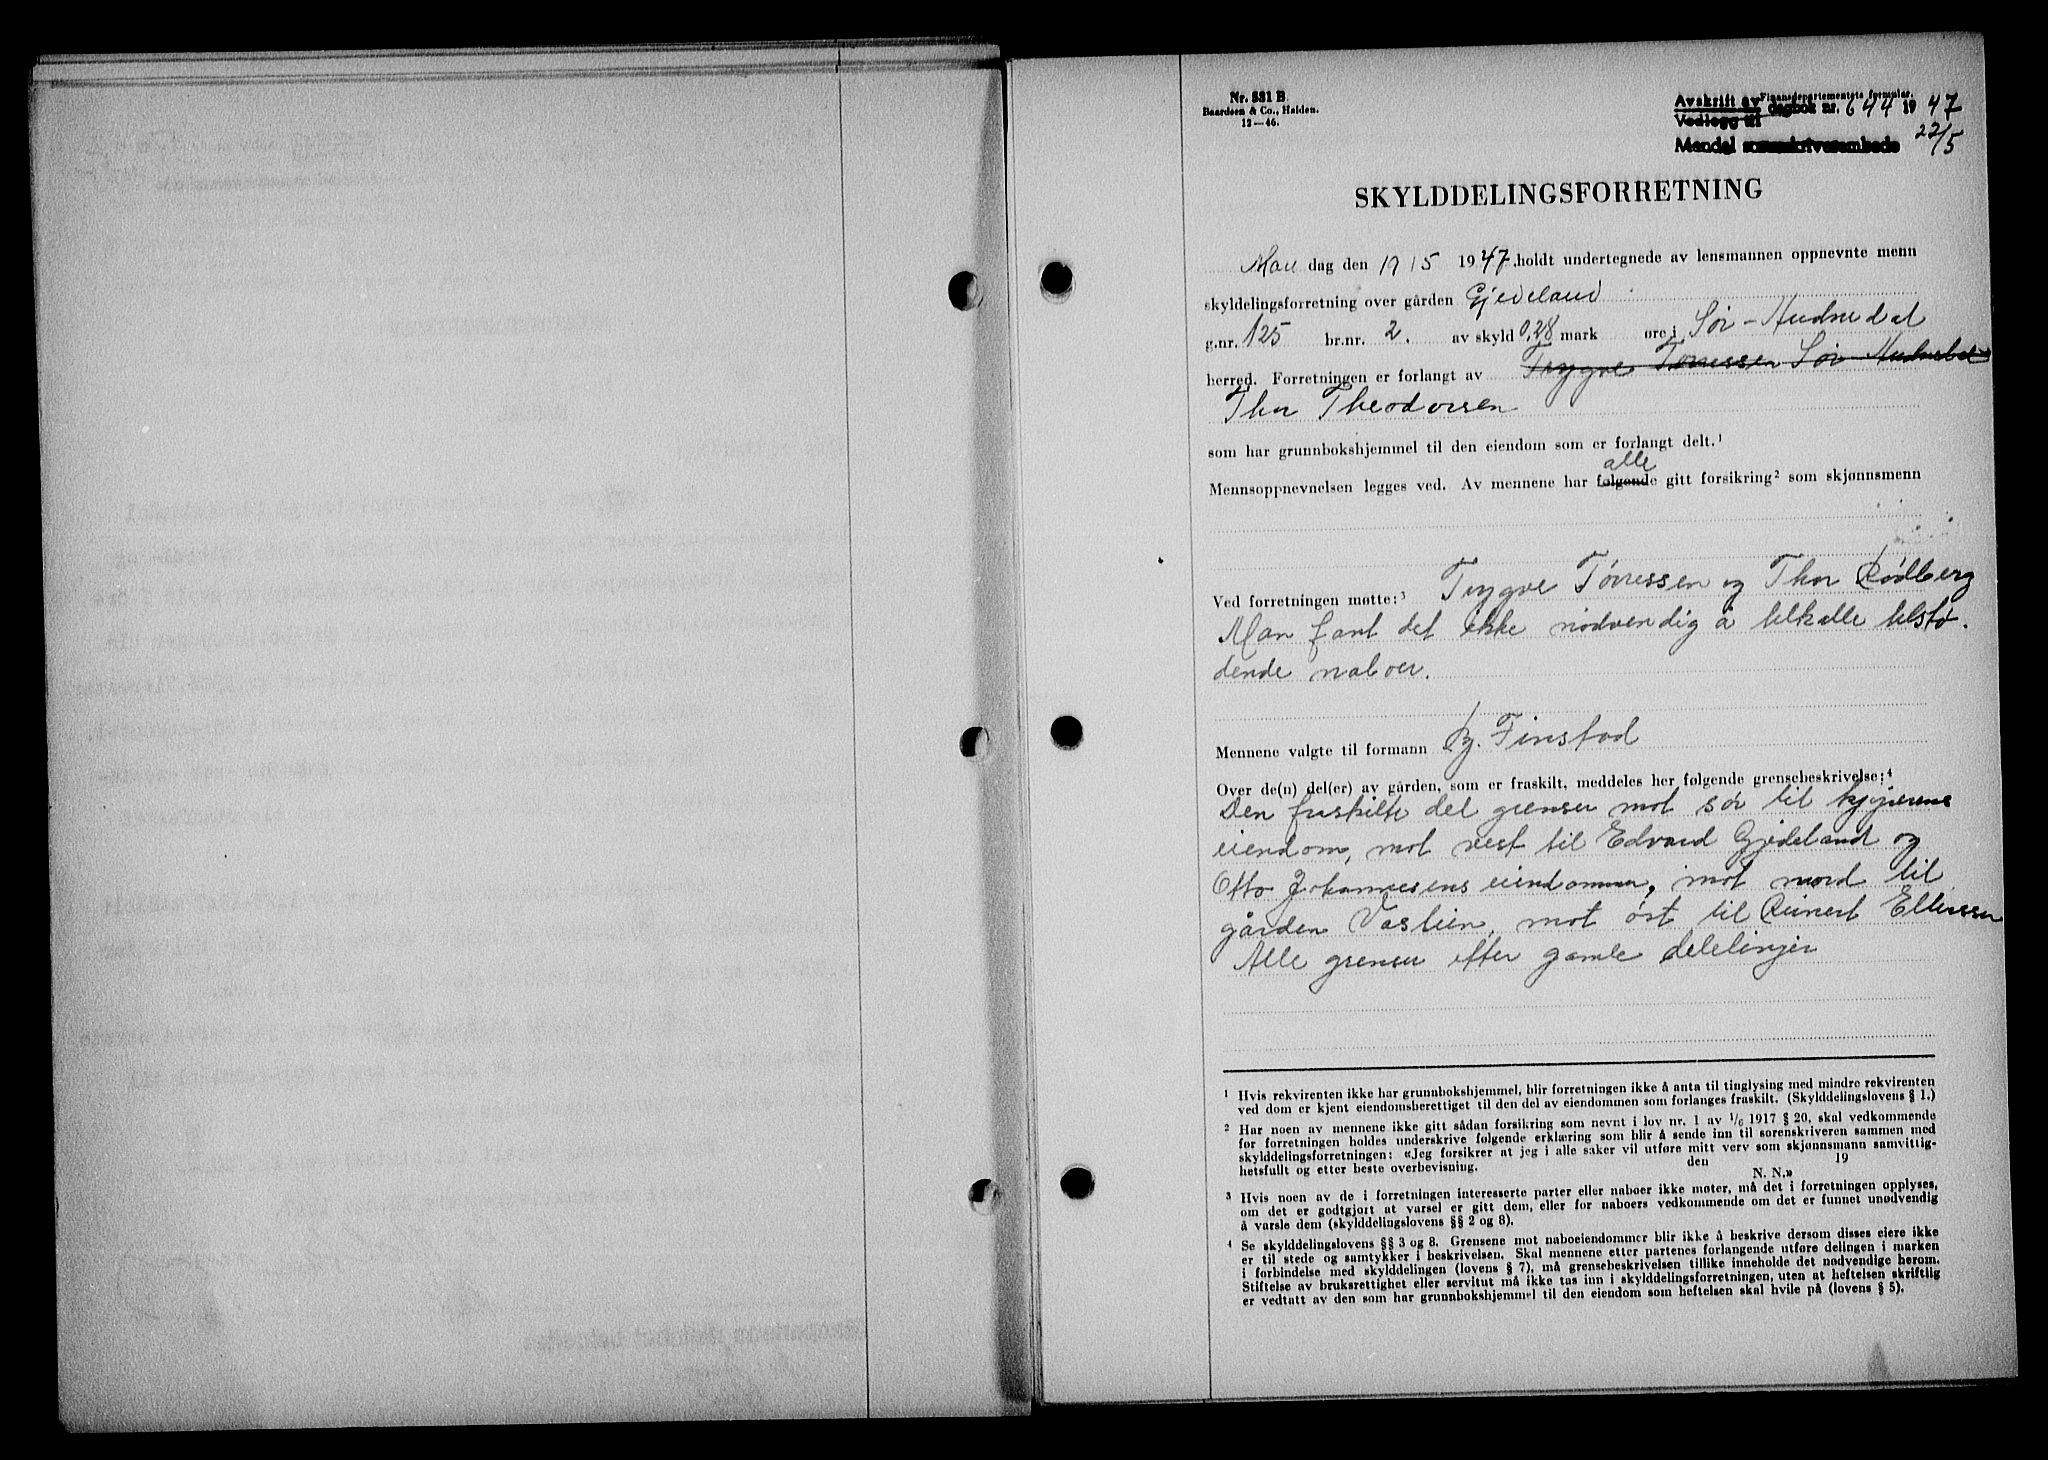 Nr. 531 B
Baardsen & Co., Halden.
12—46.
Finansdepartementets formular.
Avskrift av dagbok nr. 644 1947
Vedlegg til
Mandal sorenskriverembede 22/5
SKYLDDELINGSFORRETNING
Man dag den 19/5 1947 holdt undertegnede av lensmannen oppnevnte menn
skylddelingsforretning over gården Gjedeland
g.nr. 125 br.nr. 2. av skyld 0,28 mark øre i Sør-Audnedal
herred. Forretningen er forlangt av Trygve Tønnessen Sør Audnedal
Thor Theodorsen
som har grunnbokshjemmel til den eiendom som er forlangt delt.¹
alle
Mennsoppnevnelsen legges ved. Av mennene har følgende gitt forsikring² som skjønnsmenn
Ved forretningen møtte:³ Trygve Tønnessen og Thor Rødberg
Man fant det ikke nødvendig å tilkalle tilstø-
dende naboer.
Mennene valgte til formann B. Finstad
Over de(n) del(er) av gården, som er fraskilt, meddeles her følgende grensebeskrivelse:⁴
Den fraskilte del grenser mot sør til kjøperens
eiendom, mot vest til Edvard Gjedeland og
Otto Johannesens eiendommer, mot nord til
gården Vaslien, mot øst til Reinert Ellenssen
Alle grenser efter gamle delelinjer
¹ Hvis rekvirenten ikke har grunnbokshjemmel, blir forretningen ikke å anta til tinglysing med mindre rekvirenten
ved dom er kjent eiendomsberettiget til den del av eiendommen som forlanges fraskilt. (Skylddelingslovens § 1.)
² Har noen av mennene ikke gitt sådan forsikring som nevnt i lov nr. 1 av 1/6 1917 § 20, skal vedkommende
før forretningen holdes underskrive følgende erklæring som blir å sende inn til sorenskriveren sammen med
skylddelingsforretningen: «Jeg forsikrer at jeg i alle saker vil utføre mitt verv som skjønnsmann samvittig-
hetsfullt og etter beste overbevisning. den 19
N. N.»
³ Hvis noen av de i forretningen interesserte parter eller naboer ikke møter, må det i forretningen opplyses,
om det er godtgjort at varsel er gitt dem, eller for naboers vedkommende om det er funnet unødvendig
å varsle dem (skylddelingslovens §§ 2 og 8).
⁴ Se skylddelingslovens §§ 3 og 8. Grensene mot naboeiendommer blir ikke å beskrive dersom disses eiere ikke
er til stede og samtykker i beskrivelsen. Skal mennene etter partenes forlangende utføre delingen i marken
i forbindelse med skylddelingen (lovens § 7), må grensebeskrivelsen tillike inneholde det nødvendige herom.
Stiftelse av bruksrettighet eller servitut må ikke tas inn i skylddelingsforretningen, uten at heftelsen skriftlig
er vedtatt av den som har grunnbokshjemmel til den eiendom som heftelsen skal hvile på (lovens § 5).